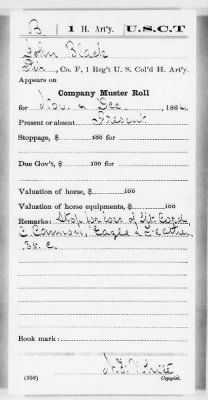 B | 1 H. Art'y. | U.S.C.T
John Black
Pvt., Co. F, 1 Reg't U. S. Col'd H. Art'y.
Appears on
Company Muster Roll
for Nov. & Dec., 186
Present or absent Present
Stoppage, $ 100 for
Due Gov't, $ 100 for
Valuation of horse, $ 100
Valuation of horse equipments, $ 100
Remarks: Stop for loss of Hat Cord,
C Cannon, Eagle & Feather
36 c.
Book mark:
(358) Copyist.